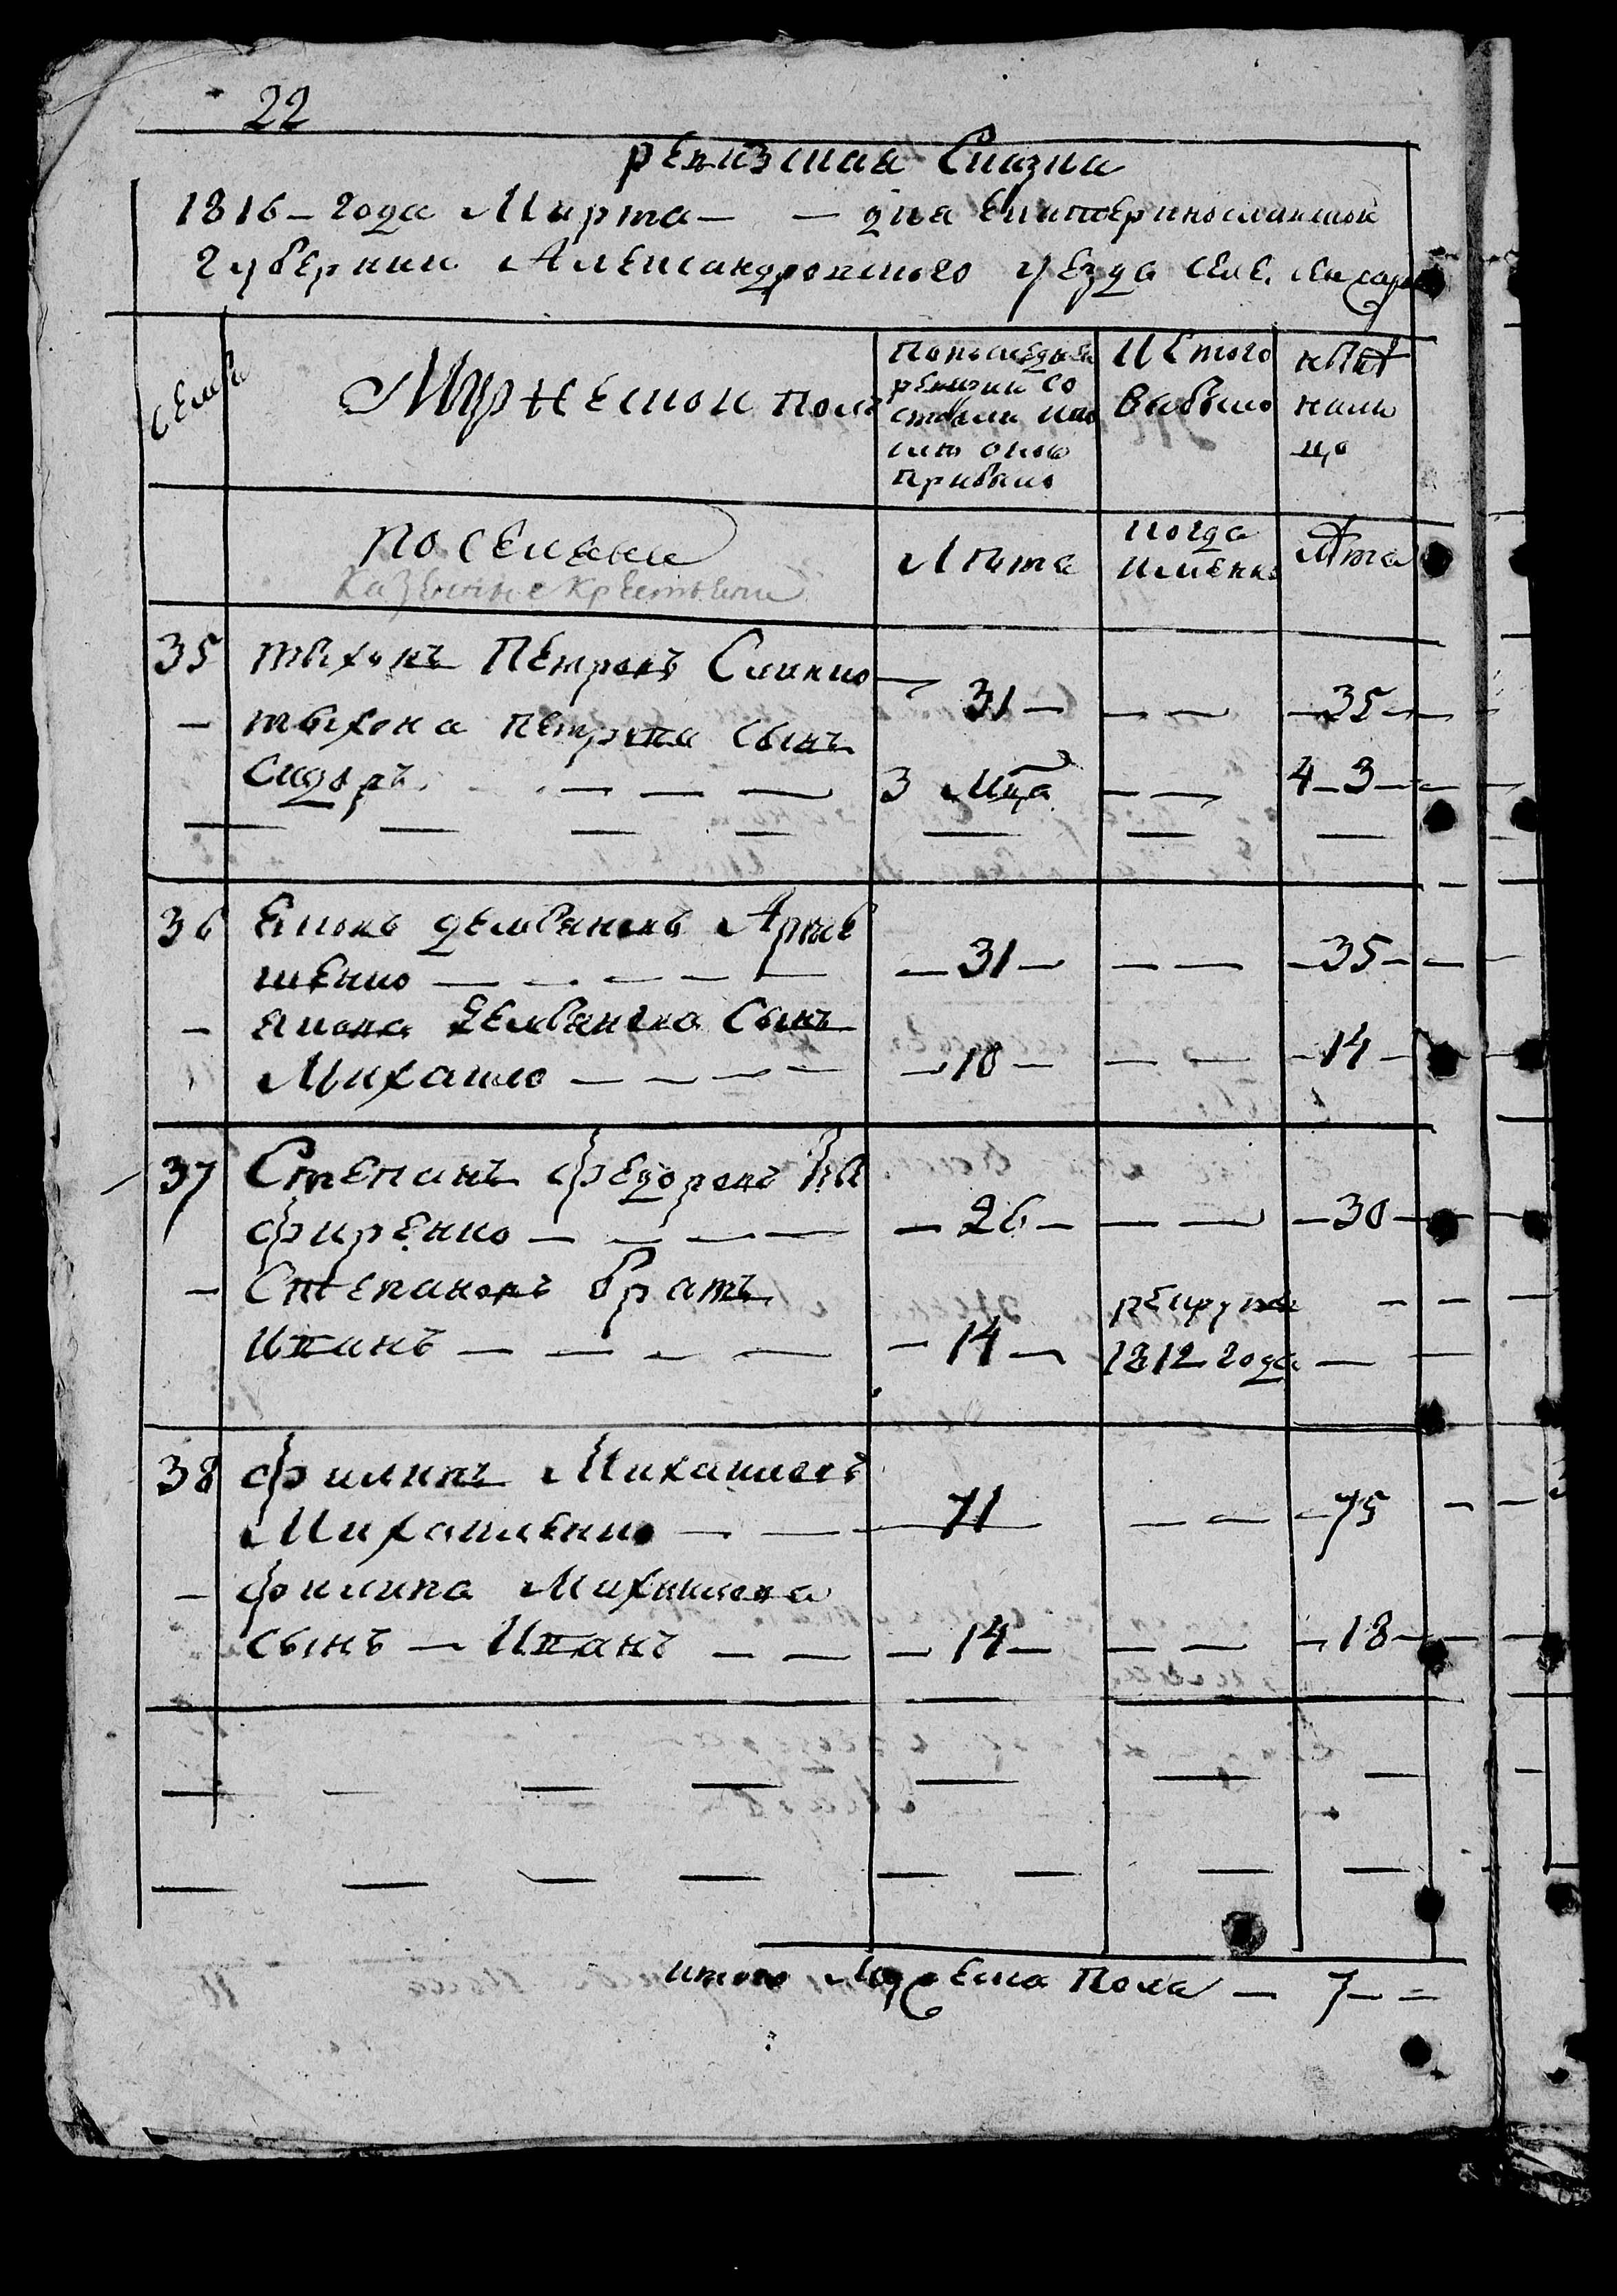 22
ревизская Сказка
1816 – года Марта – – дня Екатеринославской
губернии Александровского уезда селе.
Семьи
Мужеской полъ
По последней ревизии состояло и после оной прибыло
Ис того выбыло
ныне на лицо
поселяне
Казенные Крестьяне
Лета
когда именно
Лета
35 тыхонъ Петровъ Слинко – 31 – – – 35
– тыхона петрова сынъ
Сидоръ – – – 3 мца – – 4 – 3
36 Яковъ демьяновъ
шенко – – – 31 – – – 35
– якова демьянова Сынъ
Михайло – – – – 10 – – – 14
37 Степанъ федоровъ
фиренко – – – – 26 – – – 30
– Степановъ братъ
иванъ – – – – 14 – рекрут 1812 года –
38 филипъ Михайловъ
Михайленко – – 71 – – 75
– филипа Михайлова
сынъ – Иванъ – – – 14 – – – 18
итого мужеска Пола – 7 –